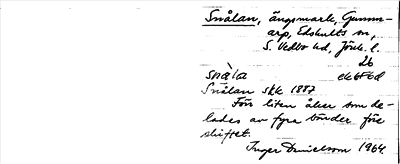 Snålan, ängsmark, Gunn-
arp, Edshults sn,
S. Vedbo hd, Jönk. l.
26
snàla
Snålan skk 1887
Förr liten åker som de-
lades av fyra bönder före
skiftet.
Inger Danielsson 1964.